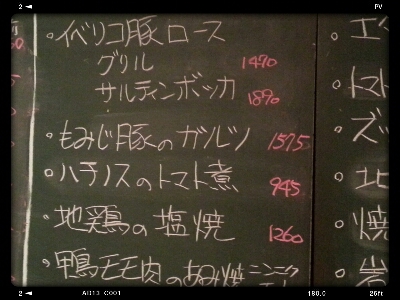 2 PV
。イベリコ豚ロース
グリル 1470
サルティンボッカ 1890
。もみじ豚のガルツ 1575
。ハチノスのトマト煮 945
。地鶏の塩焼 1260
。鴨モモ肉の
ニンニク
。エ
。トマト
。ズッ
。北
。焼
。岩
2 AD13 C001 180.0 25ft